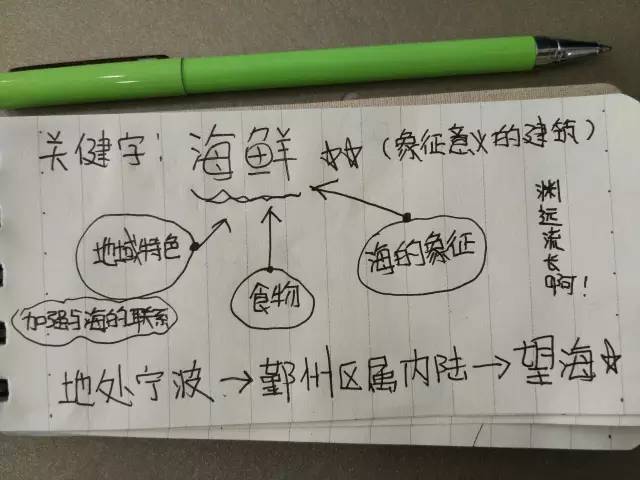 关键字：海鲜 ☆☆（象征意义的建筑）
渊远流长啊！
地域特色
食物
海的象征
加强与海的联系
地处宁波→鄞州区属内陆→望海☆